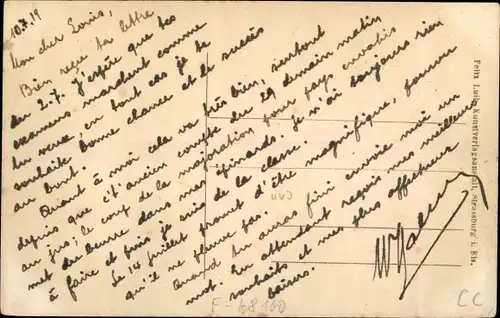 10.7.19
Mon cher Louis,
Bien reçu ta lettre
du 2.7. J'espère que tes
examens marchent comme
tu veux, en tout cas je te
souhaite bonne chance et de succès
au bout.
Quant à moi cela va très bien, surtout
depuis que l'ancien compte du 29 demain matin
au jus; le coup de la majoration pour pays envahis
met du beurre dans mes épinards. Je n'ai toujours rien
à faire et puis je suis de la classe.
Le 14 juillet promet d'être magnifique, pourvu
qu'il ne pleuve pas.
Quand tu auras fini envoie moi un
mot. En attendant reçois mes meilleurs
souhaits et mes plus affectueux
baisers.
Felix Luib, Kunstverlagsanstalt, Strassburg i. Els.
F-68160
CC